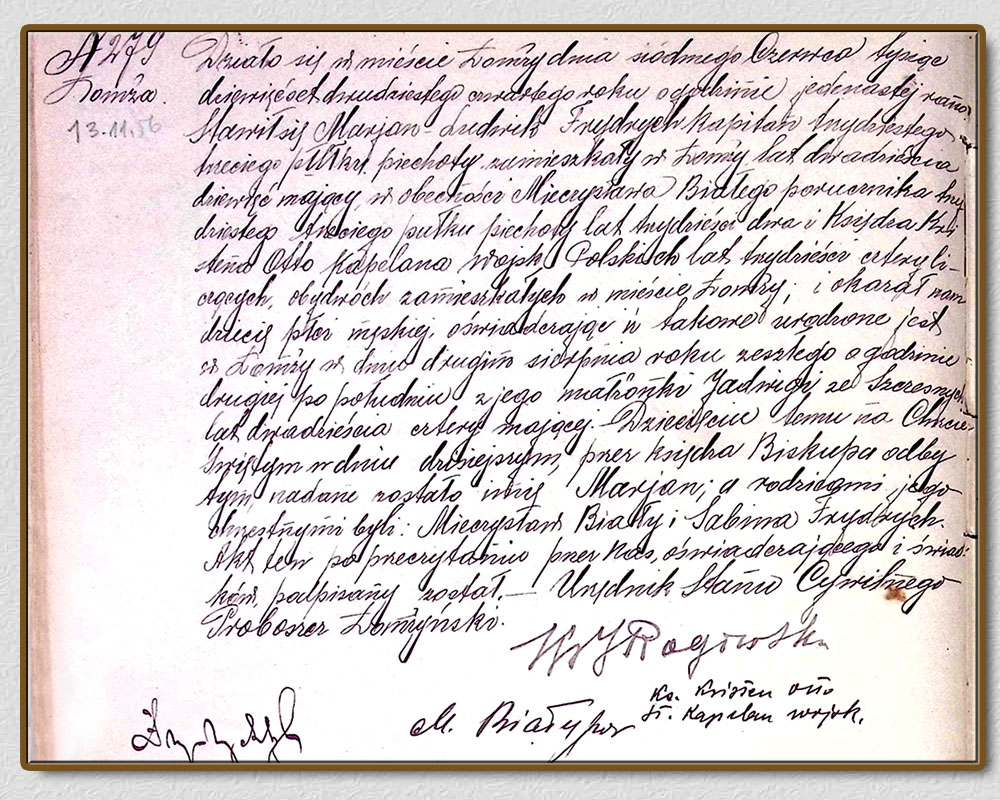 № 279
Łomża.
13.11.56
Działo się w mieście Łomży dnia siódmego Czerwca tysiąc
dziewięćset dwudziestego czwartego roku o godzinie jedenastej rano.
Stawił się Marjan-Ludwik Frydrych Kapitan trzydziestego
trzeciego pułku piechoty zamieszkały w Łomży lat dwadzieścia
dziewięć mający, w obecności Mieczysława Białego porucznika trzy
dziestego trzeciego pułku piechoty lat trzydzieści dwa i Księdza Kry
stena Otto Kapelana Wojsk Polskich lat trzydzieści cztery li-
czących, obydwóch zamieszkałych w mieście Łomży; i okazał nam
dziecię płci męskiej, oświadczając iż takowe urodzone jest
w Łomży w dniu drugim sierpnia roku zeszłego o godzinie
drugiej po południu z jego małżonki Jadwigi ze Szczesnych
lat dwadzieścia cztery mającej. Dziecięciu temu na Chrzcie
Świętym w dniu dzisiejszym, przez księdza Biskupa odby
tym, nadane zostało imię Marjan; a rodzicami jego
chrzestnymi byli: Mieczysław Biały i Sabina Frydrych.
Akt ten po przeczytaniu przez Nas, oświadczającego i świad-
ków, podpisany został. — Urzędnik Stanu Cywilnego
Proboszcz Łomżyński.
Rogowski
Ks. Kristen Otto
St. Kapelan wojsk.
M. Biały por
Frydrych